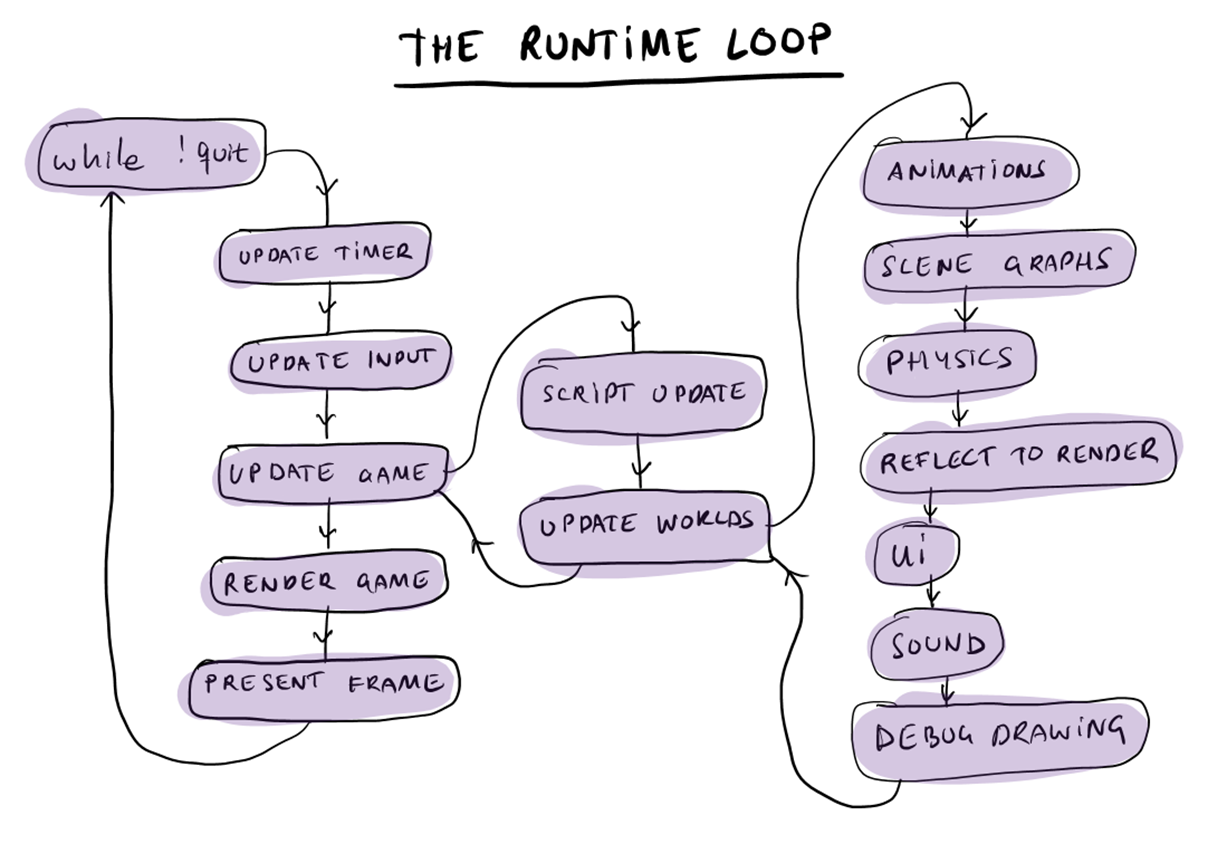 THE RUNTiME LOOP
while !quit
UPDATE TiMER
UPDATE INPUT
UPDATE GAME
RENDER GAME
PRESENT FRAME
SCRIPT UPDATE
UPDATE WORLDS
ANiMATiONS
SCENE GRAPHS
PHYSICS
REFLECT TO RENDER
Ui
SOUND
DEBUG DRAWiNG